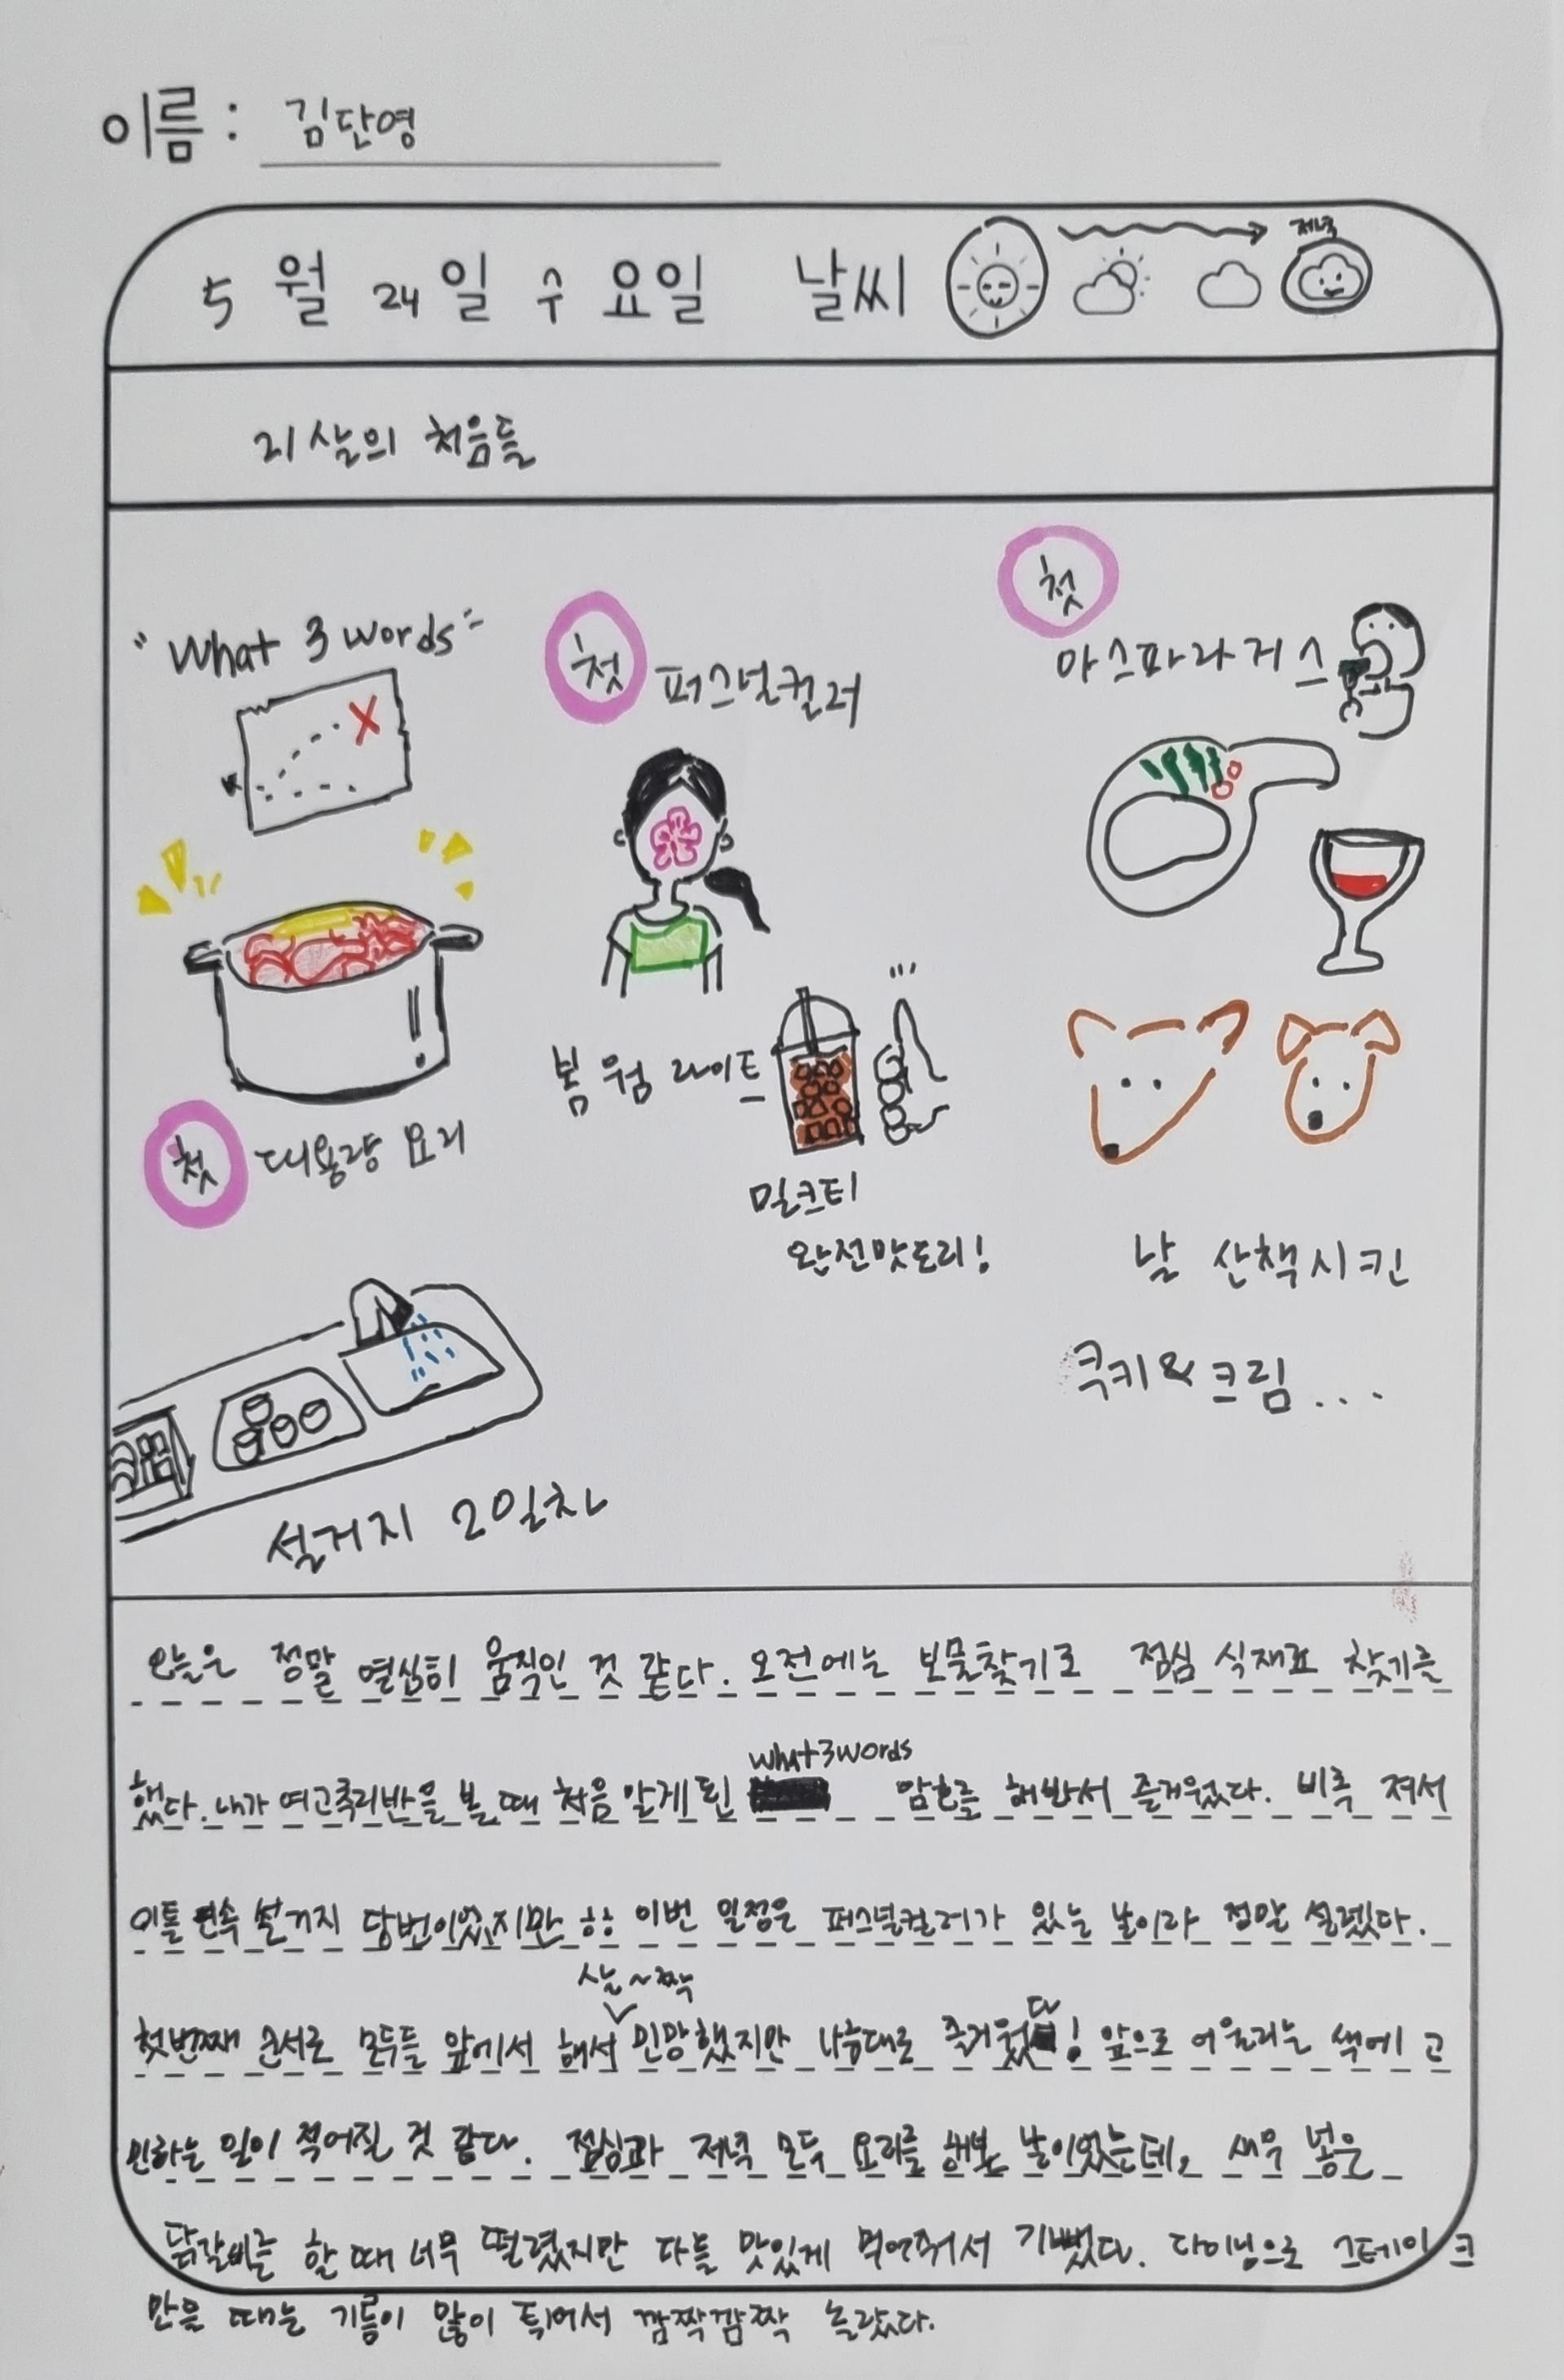 이름 : 김단영
5 월 24 일 수 요일 날씨 저녁
21살의 처음들
"What 3 words"
첫 대용량 요리
설거지 2일차
첫 퍼스널컬러
봄 웜 라이트
밀크티
완전맛도리!
첫
아스파라거스
날 산책시킨
쿡키&크림...
오늘은 정말 열심히 움직인 것 같다. 오전에는 보물찾기로 점심 식재료 찾기를
했다. 내가 여고추리반을 볼 때 처음 알게 된 what3words 암호를 해봐서 즐거웠다. 비록 져서
이틀 연속 설거지 당번이었지만 ㅎㅎ 이번 일정은 퍼스널컬러가 있는 날이라 정말 설렜다.
첫번째 순서로 모두들 앞에서 해서 살~짝 민망했지만 나름대로 즐거웠다! 앞으로 어울리는 색에 고
민하는 일이 적어질 것 같다. 점심과 저녁 모두 요리를 해본 날이었는데, 새우 넣은
닭갈비를 할 때 너무 떨렸지만 다들 맛있게 먹어줘서 기뻤다. 다이닝으로 스테이크
만들 때는 기름이 많이 튀어서 깜짝깜짝 놀랐다.